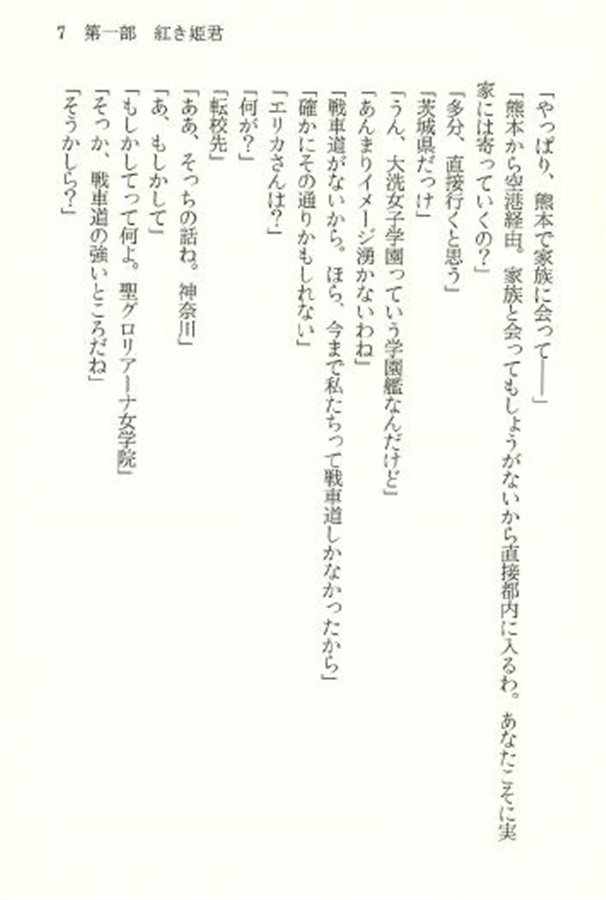 7　第一部　紅き姫君
「やっぱり、熊本で家族に会って――」
「熊本から空港経由。家族と会ってもしょうがないから直接都内に入るわ。あなたこそに実
家には寄っていくの？」
「多分、直接行くと思う」
「茨城県だっけ」
「うん、大洗女子学園っていう学園艦なんだけど」
「あんまりイメージ湧かないわね」
「戦車道がないから。ほら、今まで私たちって戦車道しかなかったから」
「確かにその通りかもしれない」
「エリカさんは？」
「何が？」
「転校先」
「ああ、そっちの話ね。神奈川」
「あ、もしかして」
「もしかしてって何よ。聖グロリアーナ女学院」
「そっか、戦車道の強いところだね」
「そうかしら？」